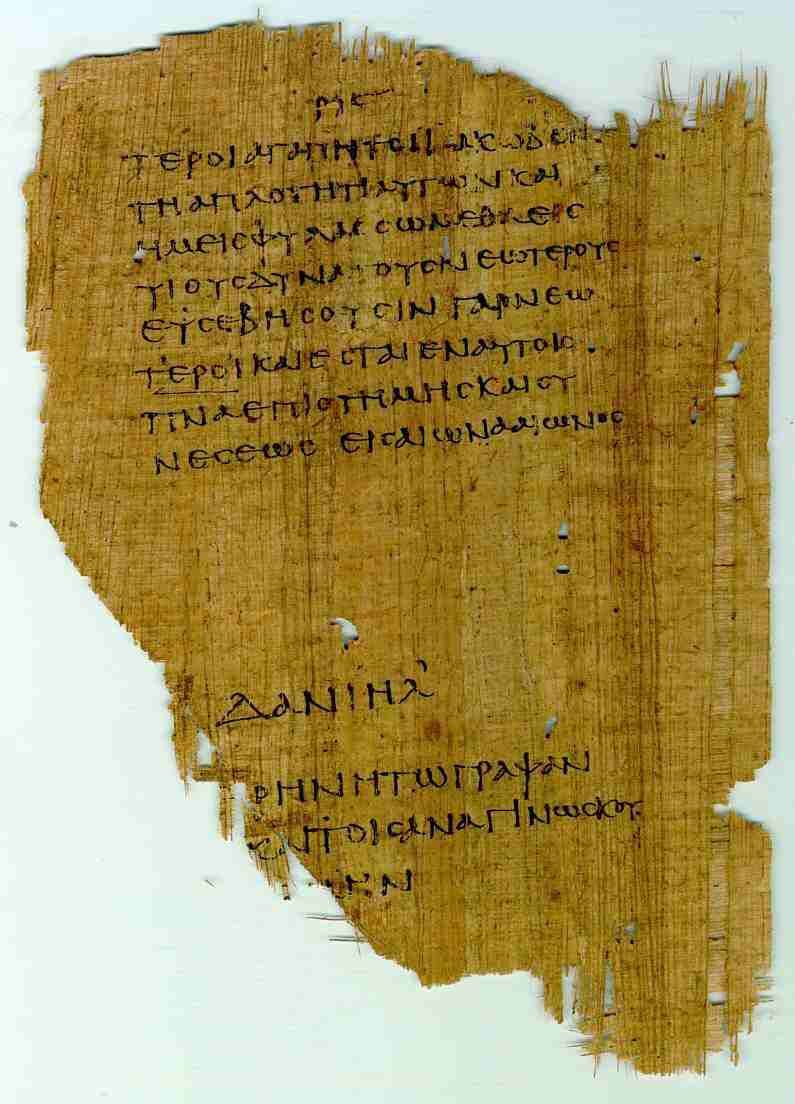 ΡϘϚ
ΤΕΡΟΙΑΓΑΠΗΤΟΙΙΑΚΩΒΕΝ
ΤΗΑΠΛΟΤΗΤΙΑΥΤΩΝΚΑΙ
ΗΜΕΙϹΦΥΛΑϹϹΩΜΕΘΑΕΙϹ
ΥΙΟΥϹΔΥΝΑΤΟΥϹΝΕΩΤΕΡΟΥϹ
ΕΥϹΕΒΗϹΟΥϹΙΝ ΓΑΡΝΕΩ
ΤΕΡΟΙΚΑΙΕϹΤΑΙΕΝΑΥΤΟΙϹ
ΠΝΑΕΠΙϹΤΗΜΗϹΚΑΙϹΥ
ΝΕϹΕΩϹ ΕΙϹΑΙΩΝΑΑΙΩΝΟϹ
ΔΑΝΙΗΛ
ΡΗΝΗΤΩΓΡΑΨΑΝ
ΑΙΤΟΙϹΑΝΑΓΙΝΩϹΚΟΥ
ΜΗΝ